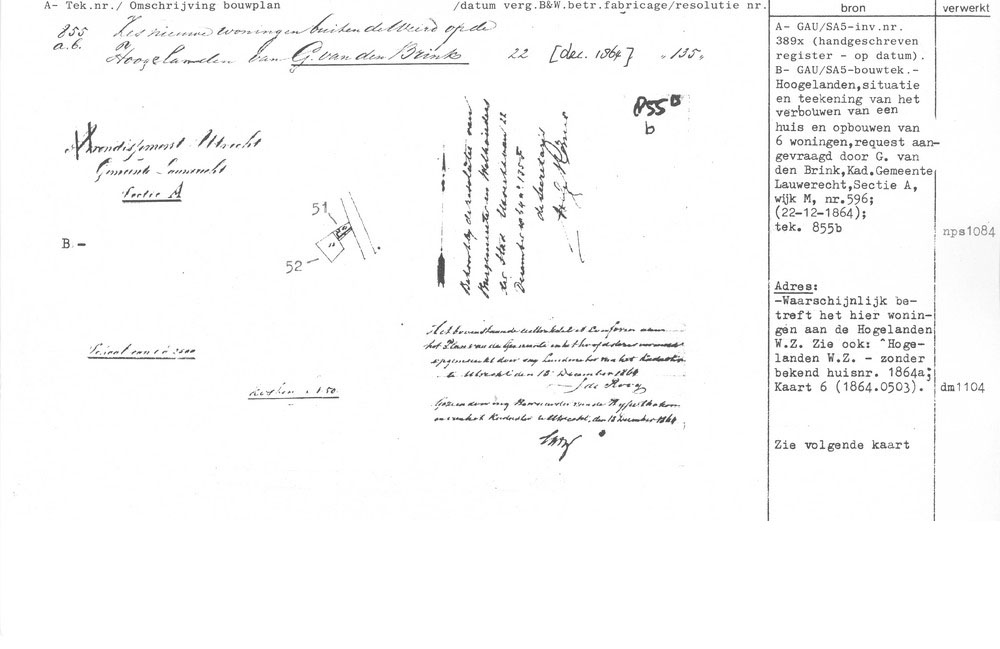 A- Tek.nr./ Omschrijving bouwplan /datum verg.B&W.betr.fabricage/resolutie nr.
bron
verwerkt
855 Zes nieuwe woningen buiten de Weerd op de
a.b. Hoogelanden van G. van den Brink 22 [dec. 1864] "135"
855 B
b
Arrondissement Utrecht
Gemeente Lauwerecht
Sectie A
B.-
51
52
Behoort bij de resolutie van
Burgemeester en Wethouders
der Stad Utrecht van 22
December 1864 no. 135
de Secretaris
Schaal van 1 à 2500
Het bovenstaande uittreksel is conform aan
het Plan van de Gemeente en het hoofd dezer vermeld
opgemaakt door mij Landmeter van het Kadaster
te Utrecht den 12 December 1864
J de Rooy
Gezien door mij Bewaarder van de Hypotheken
en van het Kadaster te Utrecht, den 12 December 1864
A- GAU/SA5-inv.nr.
389x (handgeschreven
register - op datum).
B- GAU/SA5-bouwtek.-
Hoogelanden,situatie
en teekening van het
verbouwen van een
huis en opbouwen van
6 woningen,request aan-
gevraagd door G. van
den Brink,Kad.Gemeente
Lauwerecht,Sectie A,
wijk M, nr.596;
(22-12-1864);
tek. 855b
nps1084
Adres:
-Waarschijnlijk be-
treft het hier wonin-
gen aan de Hogelanden
W.Z. Zie ook: ^Hoge-
landen W.Z. - zonder
bekend huisnr. 1864a;
Kaart 6 (1864.0503).
dm1104
Zie volgende kaart